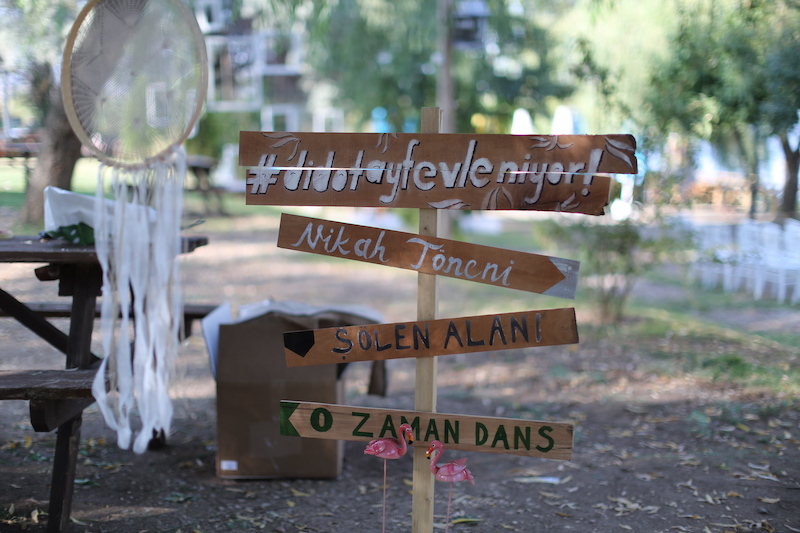 #didotayfevleniyor!
Nikah Töreni
ŞÖLEN ALANI
O ZAMAN DANS